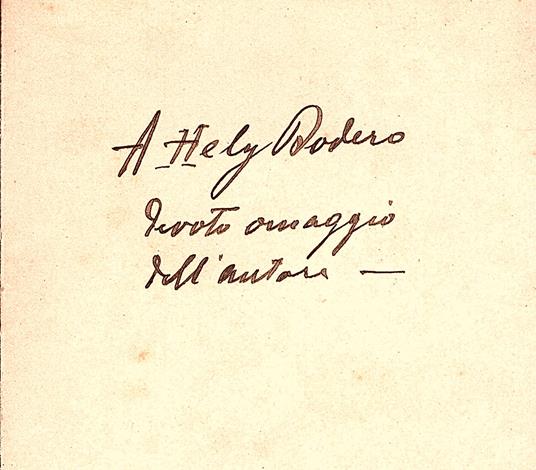 A Hely Rodero
devoto omaggio
dell'autore —